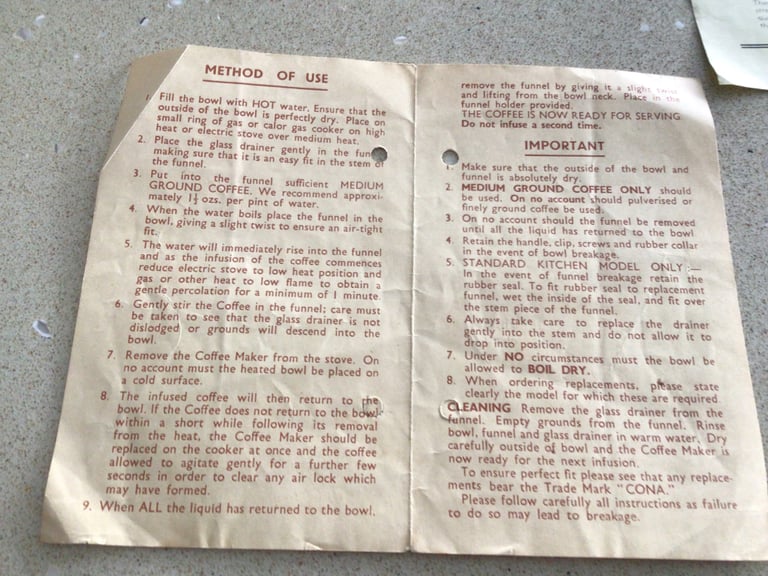 METHOD OF USE
1. Fill the bowl with HOT water. Ensure that the
outside of the bowl is perfectly dry. Place on
small ring of gas or calor gas cooker on high
heat or electric stove over medium heat.
2. Place the glass drainer gently in the funnel
making sure that it is an easy fit in the stem of
the funnel.
3. Put into the funnel sufficient MEDIUM
GROUND COFFEE. We recommend approxi-
mately 1½ ozs. per pint of water.
4. When the water boils place the funnel in the
bowl, giving a slight twist to ensure an air-tight
fit.
5. The water will immediately rise into the funnel
and as the infusion of the coffee commences
reduce electric stove to low heat position and
gas or other heat to low flame to obtain a
gentle percolation for a minimum of 1 minute.
6. Gently stir the Coffee in the funnel; care must
be taken to see that the glass drainer is not
dislodged or grounds will descend into the
bowl.
7. Remove the Coffee Maker from the stove. On
no account must the heated bowl be placed on
a cold surface.
8. The infused coffee will then return to the
bowl. If the Coffee does not return to the bowl
within a short while following its removal
from the heat, the Coffee Maker should be
replaced on the cooker at once and the coffee
allowed to agitate gently for a further few
seconds in order to clear any air lock which
may have formed.
9. When ALL the liquid has returned to the bowl.
remove the funnel by giving it a slight twist
and lifting from the bowl neck. Place in the
funnel holder provided.
THE COFFEE IS NOW READY FOR SERVING
Do not infuse a second time.
IMPORTANT
1. Make sure that the outside of the bowl and
funnel is absolutely dry.
2. MEDIUM GROUND COFFEE ONLY should
be used. On no account should pulverised or
finely ground coffee be used.
3. On no account should the funnel be removed
until all the liquid has returned to the bowl
4. Retain the handle, clip, screws and rubber collar
in the event of bowl breakage.
5. STANDARD KITCHEN MODEL ONLY:—
In the event of funnel breakage retain the
rubber seal. To fit rubber seal to replacement
funnel, wet the inside of the seal, and fit over
the stem piece of the funnel.
6. Always take care to replace the drainer
gently into the stem and do not allow it to
drop into position.
7. Under NO circumstances must the bowl be
allowed to BOIL DRY.
8. When ordering replacements, please state
clearly the model for which these are required.
CLEANING Remove the glass drainer from the
funnel. Empty grounds from the funnel. Rinse
bowl, funnel and glass drainer in warm water. Dry
carefully outside of bowl and the Coffee Maker is
now ready for the next infusion.
To ensure perfect fit please see that any replace-
ments bear the Trade Mark "CONA."
Please follow carefully all instructions as failure
to do so may lead to breakage.